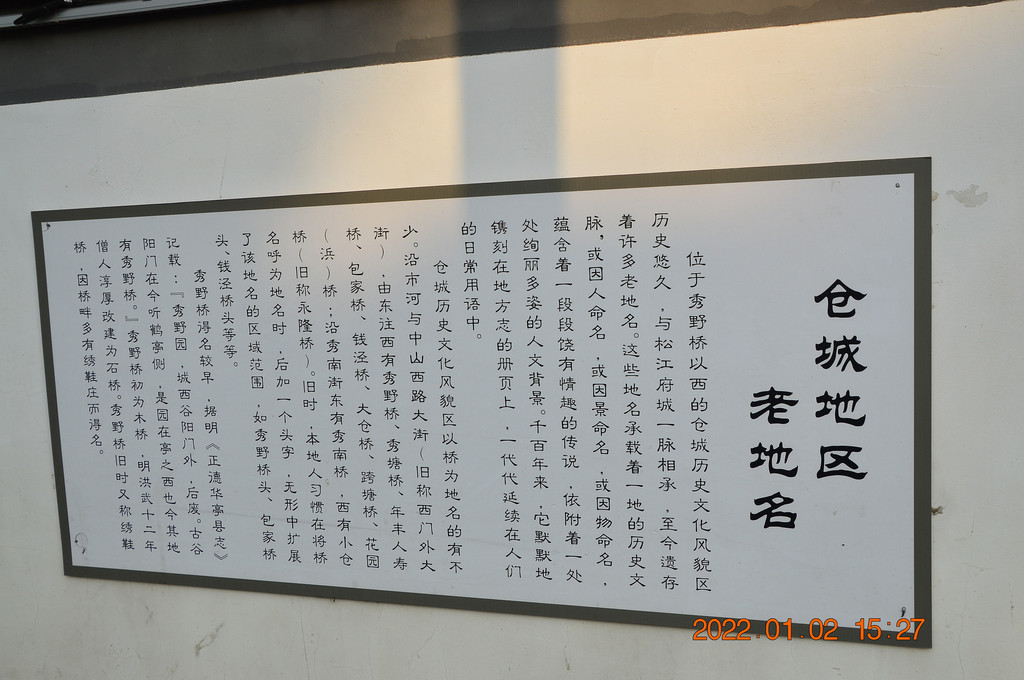 仓城地区
老地名
位于秀野桥以西的仓城历史文化风貌区
历史悠久，与松江府城一脉相承，至今遗存
着许多老地名。这些地名承载着一地的历史文
脉，或因人命名，或因景命名，或因物命名，
蕴含着一段段饶有情趣的传说，依附着一处
处绚丽多姿的人文背景。千百年来，它默默地
镌刻在地方志的册页上，一代代延续在人们
的日常用语中。
仓城历史文化风貌区以桥为地名的有不
少。沿市河与中山西路大街（旧称西门外大
街），由东注西有秀野桥、秀塘桥、年丰人寿
桥、包家桥、钱泾桥、大仓桥、跨塘桥、花园
（浜）桥；沿秀南街东有秀南桥，西有小仓
桥（旧称永隆桥）。旧时，本地人习惯在将桥
名呼为地名时，后加一个头字，无形中扩展
了该地名的区域范围，如秀野桥头、包家桥
头、钱泾桥头等等。
秀野桥得名较早，据明《正德华亭县志》
记载：『秀野园，城西谷阳门外，后废。古谷
阳门在今听鹤亭侧，是园在亭之西也今其地
有秀野桥。』秀野桥初为木桥，明洪武十二年
僧人淳厚改建为石桥。秀野桥旧时又称绣鞋
桥，因桥畔多有绣鞋庄而得名。
2022.01.02 15:27